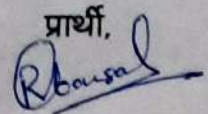 प्रार्थी,
RBansal